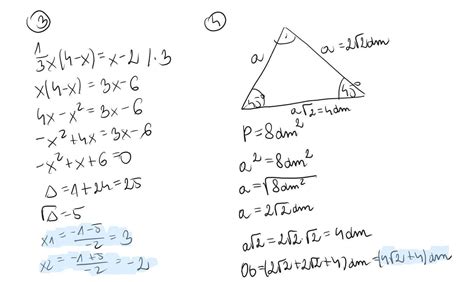 3
1/3x(4-x)=x-2 /·3
x(4-x)=3x-6
4x-x²=3x-6
-x²+4x=3x-6
-x²+x+6=0
Δ=1+24=25
√Δ=5
x1=-1-5/-2=3
x2=-1+5/-2=-2
4
a
a=2√2dm
45°
45°
a√2=4dm
P=8dm²
a²=8dm²
a=√8dm²
a=2√2dm
a√2=2√2·√2=4dm
Ob=(2√2+2√2+4)dm=(4√2+4)dm